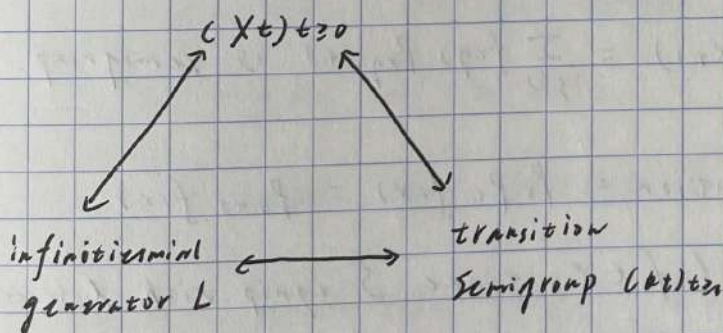 (Xt) t≥0
infinitiesminl
generator L
transition
semigroup (Rt)t≥0